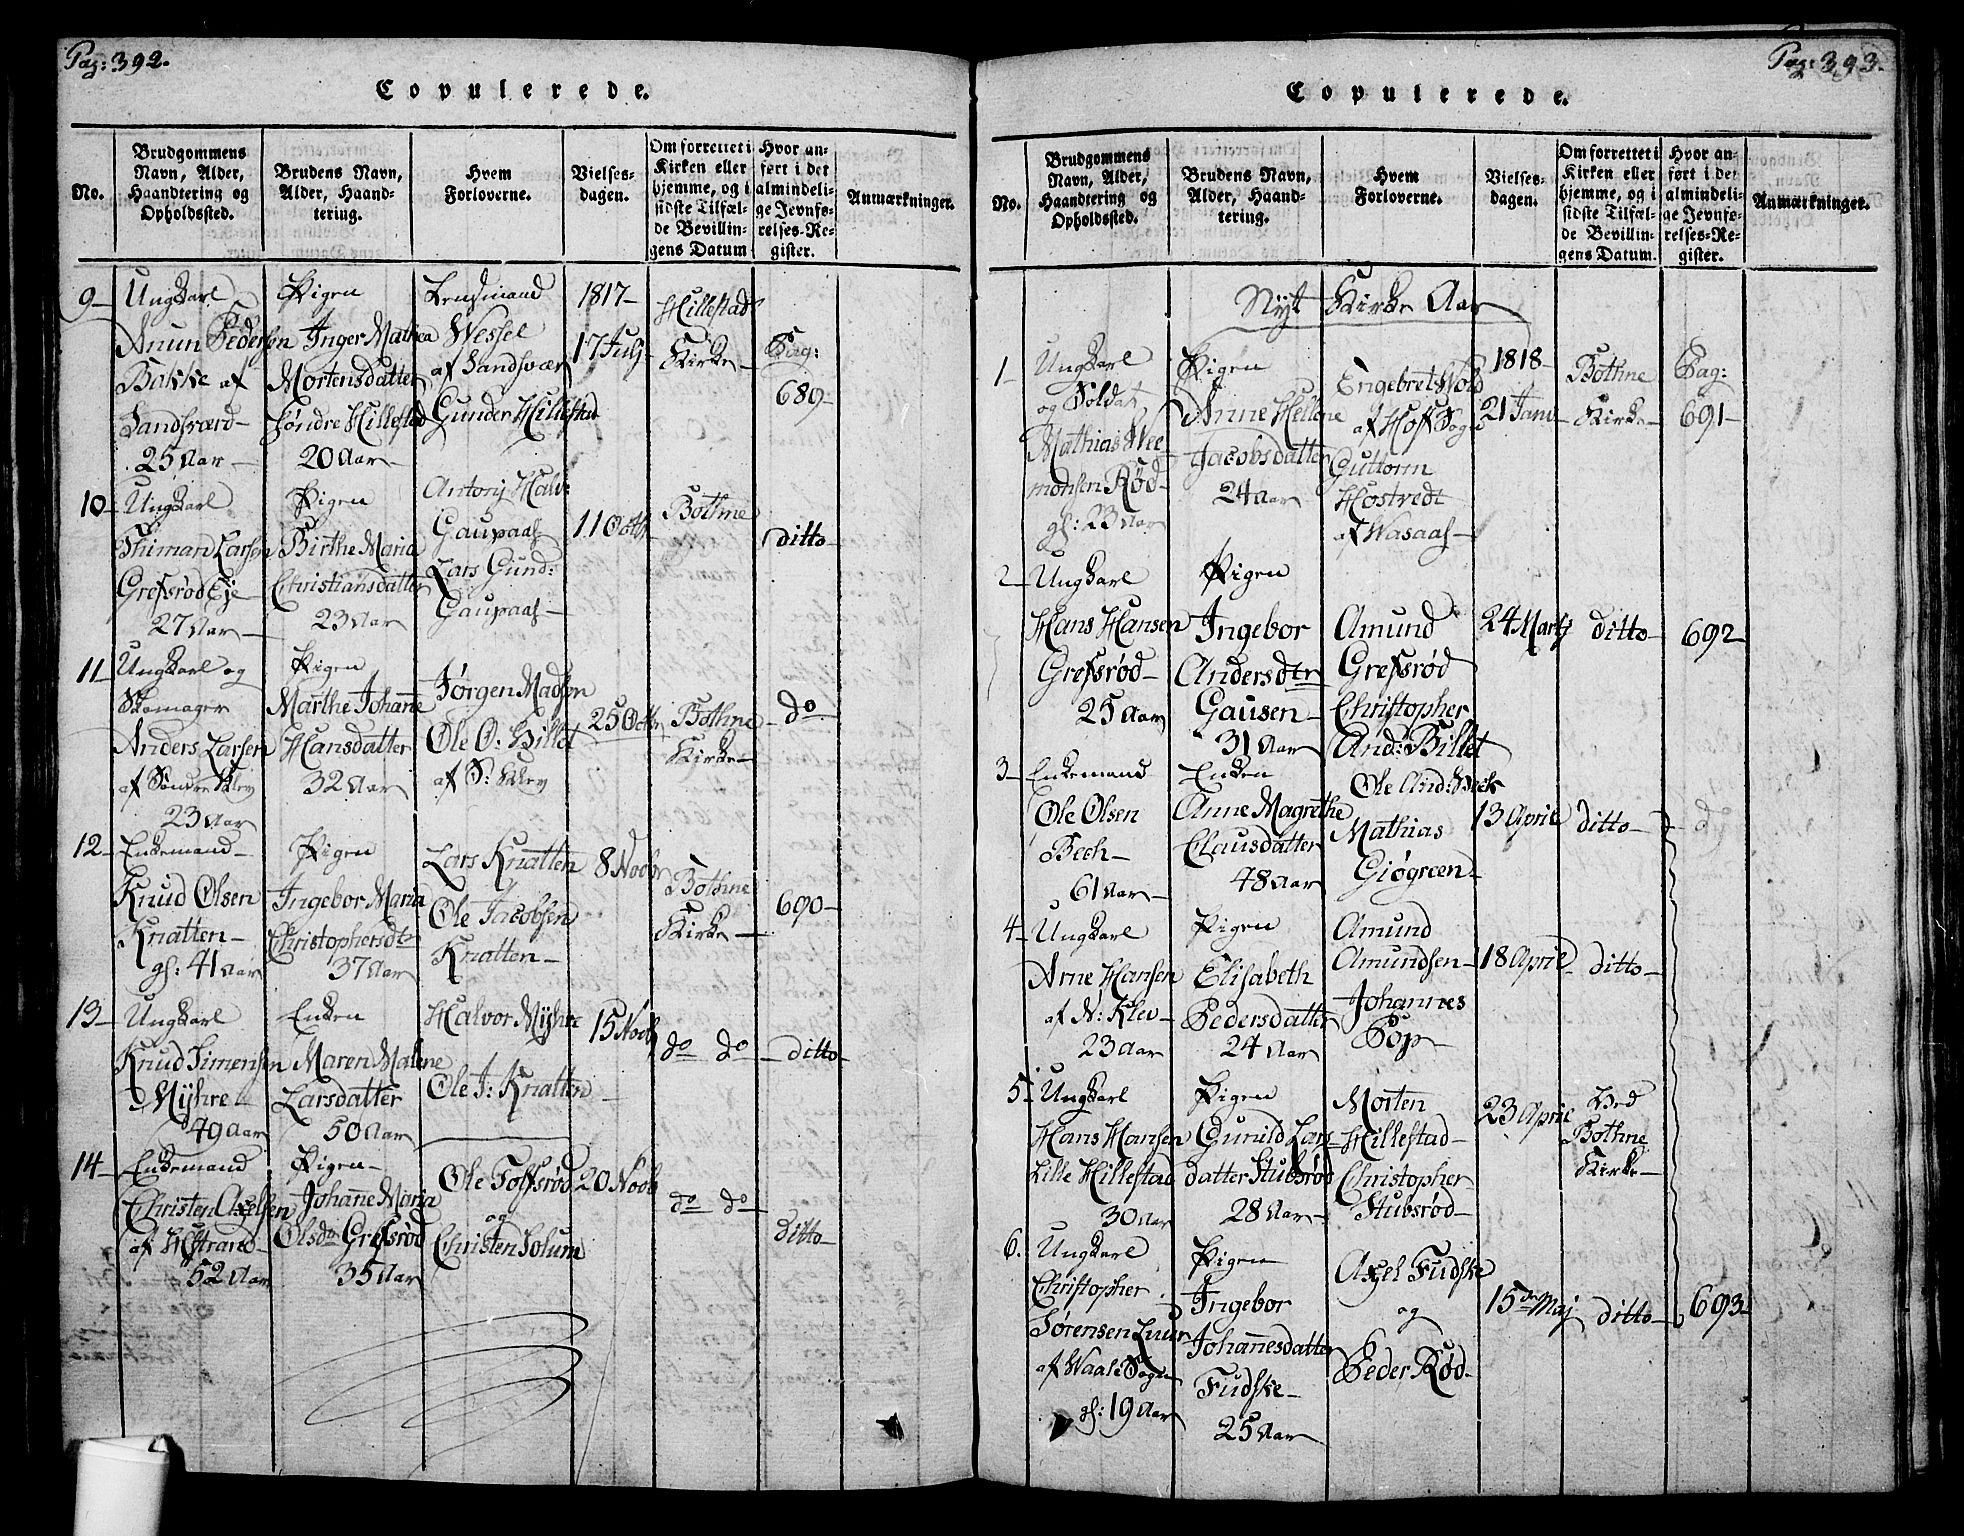 Pag: 392.
Copulerede.
No.
Brudgommens
Navn, Alder,
Haandtering og
Opholdssted.
Brudens Navn,
Alder, Haand-
tering.
Hvem
Forloverne.
Vielses-
dagen.
Om forrettet i
Kirken eller
hjemme, og i
sidste Tilfæl-
de Bevillin-
gens Datum
Hvor an-
ført i det
almindeli-
ge Jevnfø-
relses-Re-
gister.
Anmærkninger.
9-
Ungkarl
Anun Pedersen
Bakke af
Sandsværd-
25 Aar-
Pigen
Inger Mathea
Mortensdatter
Søndre Hillestad
20 Aar-
Lensmand
Wessel
af Sandsvær
Gunder Hillestad
1817-
17 Julj
Hillestad
Kirke-
Pag:
689-
10-
Ungkarl
Thiman Larsen
Grefsrød Eje
27 Aar-
Pigen
Birthe Maria
Christiansdatter
23 Aar
Antonj Halv:
Gaupaas-
Lars Gund:
Gaupaas-
11 Octb
Bothne
ditto-
11-
Ungkarl og
Skomager
Anders Larsen
af Søndre Klev
23 Aar
Pigen
Marthe Johanne
Hansdatter
32 Aar
Jørgen Madsen
Ole O: Billet
af S: Klev
25 Octb
Bothne-
Kirke-
do
12-
Enkemand-
Knud Olsen
Knatten-
gl: 41 Aar
Pigen
Ingebor Maria
Christophersdtr
37 Aar
Lars Knatten
Ole Jacobsen
Knatten-
8 Novbr
Bothne
Kirke-
690-
13-
Ungkarl
Knud Simensen
Myhre-
49 Aar
Enken
Maren Malene
Larsdatter
50 Aar
Halvor Myhre
Ole J: Knatten
15 Novb
do do
ditto-
14-
Enkemand
Christen Axelsen
af Hstrand-
52 Aar
Pigen-
Johanne Maria
Olsdr Grefsrød
35 Aar
Ole Tofsrød
og
Christen Solum
20 Novb
do do
ditto-
Pag: 393.
Copulerede.
No.
Brudgommens
Navn, Alder,
Haandtering og
Opholdssted.
Brudens Navn,
Alder, Haand-
tering.
Hvem
Forloverne.
Vielses-
dagen.
Om forrettet i
Kirken eller
hjemme, og i
sidste Tilfæl-
de Bevillin-
gens Datum.
Hvor an-
ført i det
almindeli-
ge Jevnfø-
relses-Re-
gister.
Anmærkninger.
Nyt Kirke Aar
1-
Ungkarl
og Soldat
Mathias
Rød-
gl: 23 Aar
Pigen
Anne Hellene
Jacobsdatter
24 Aar
Engebret Wold
af Hof Sogn
Guttorm
Hostvedt
af Wasaas-
1818-
21 Janv
Bothne
Kirke-
Pag:
691-
2-
Ungkarl
Hans Hansen
Grefsrød-
25 Aar
Pigen
Ingebor
Andersdtr
Gausen-
31 Aar
Amund
Grefsrød
Christopher
And: Billet
24 Martj
ditto-
692-
3-
Enkemand
Ole Olsen
Bech-
61 Aar-
Enken
Anne Magrethe
Clausdatter
48 Aar
Ole And: Beck
Mathias
Giøgreen-
13 April
ditto-
4-
Ungkarl
Arne Hansen
af N: Klev-
23 Aar
Pigen
Elisabeth
Pedersdatter
24 Aar
Amund
Amundsen-
Johannes
Bop-
18 April
ditto-
5-
Ungkarl
Hans Hansen
Lille Hillestad
30 Aar
Pigen
Gunild Lars-
datter Stubsrød
28 Aar-
Morten
Hillestad-
Christopher
Stubsrød-
23 April
Ved
Bothne
Kirke-
6.
Ungkarl
Christopher
Sørensen Luur
af Waale Sogn
gl: 19 Aar
Pigen
Ingebor
Johannesdatter
Fudske-
25 Aar
Axel Fudske
og
Peder Rød-
15de Maj
ditto-
693-